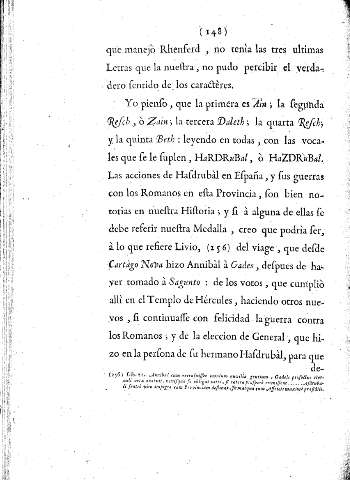 (148)
que manejò Rhenferd, no tenia las tres ultimas
Letras que la nuestra, no pudo percibir el verda-
dero sentido de los caractères.
Yo pienso, que la primera es Ain; la segunda
Resch, ò Zain; la tercera Daleth; la quarta Resch;
y la quinta Beth: leyendo en todas, con las voca-
les que se le suplen, HaRDRuBal, ò HaZDRuBal.
Las acciones de Hasdrubàl en España, y sus guerras
con los Romanos en esta Provincia, son bien no-
torias en nuestra Historia; y si à alguna de ellas se
debe referir nuestra Medalla, creo que podria ser,
à lo que refiere Livio, (256) del viage, que desde
Cartàgo Nova hizo Annibàl à Gades, despues de ha-
yer tomado à Sagunto: de los votos, que cumpliò
alli en el Templo de Hércules, haciendo otros nue-
vos, si continuasse con felicidad la guerra contra
los Romanos; y de la eleccion de General, que hi-
zo en la persona de su hermano Hasdrubàl, para que
de-
(256) Lib. 21. Annibal cum recensuisset omnium auxilia gentium, Gades profectus Her-
culi vota exolvit, novisque se obligat votis, si cetera prospera evenissent.....